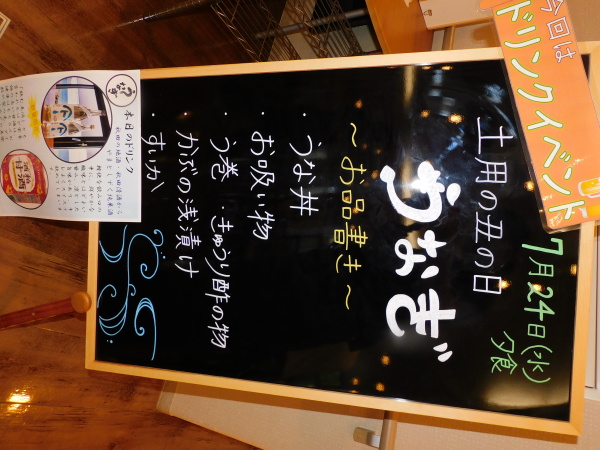 今回は
ドリンクイベント
7月24日(水)
夕食
土用の丑の日
うなぎ
〜お品書き〜
・うな丼
・お吸い物
・う巻 ・きゅうり酢の物
・かぶの浅漬け
・すいか
本日のドリンク
甘酒